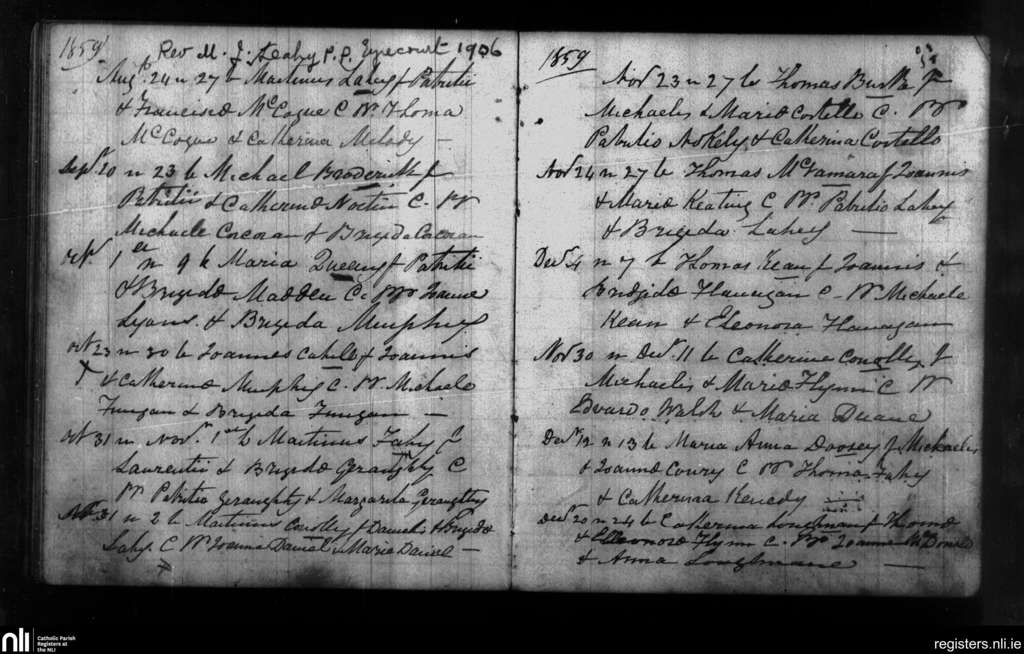 1859
Rev M. J. Leahy P.P. Eyrecourt 1906
Augt 24 n 27 b Martinus Lahy f Patritii
& Franciscæ McCogue C Pr Thoma
McCogue & Catherina Melady —
Sepr 20 n 23 b Michael Broderick f
Patritii & Catherinæ Noctin C. Pr
Michaele Corcoran & Brigida Corcoran
1 n 9 b Maria Queeny f Patritii
& Brigidæ Madden C. Pr Joanne
Lyons & Brigida Murphy
Oct 23 n 30 b Joannes Cahill f Joannis
& Catherinæ Murphy C. Pr Michaele
Finegan & Brigida Finegan —
Oct 31 n Novr 1 b Martinus Fahy f
Laurentii & Brigidæ Geraughty C
Pr Patritio Geraughty & Margarita Geraughty
31 n 2 b Martinus Conolly f Danielis & Brigidæ
Lahy C Pr Daniel & Maria Daniel —
1859
Novr 23 n 27 b Thomas Burke f
Michaelis & Mariæ Costello C. Pr
Patritio Kelly & Catherina Costello
Novr 24 n 27 b Thomas McNamara f Joannis
& Mariæ Keating C Pr Patritio Lahey
& Brigida Lahey —
Decr 4 n 7 b Thomas Kean f Joannis &
Bridgidæ Flannigan C. Pr Michaele
Kean & Eleonora Flanagan
Novr 30 n Decr 11 b Catherine Conolly f
Michaelis & Mariæ Flynn C Pr
Edvardo Walsh & Maria Duane
Decr 12 n 13 b Maria Anna Doorey f Michaelis
& Joannæ Conry C Pr Thoma Fahy
& Catherina Kenedy
Decr 20 n 24 b Catherina Loughnan f Thomæ
& Elleonoræ Flynn C. Pr Joanne McDonald
& Anna Loughnane —
nli
Catholic Parish
Registers at
the NLI
registers.nli.ie